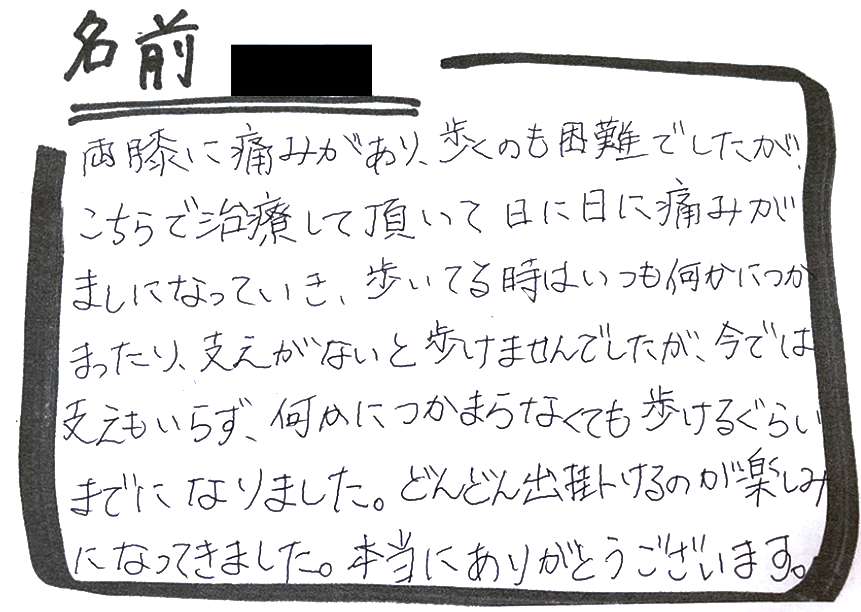 名前
両膝に痛みがあり、歩くのも困難でしたが、
こちらで治療して頂いて日に日に痛みが
ましになっていき、歩いてる時はいつも何かにつか
まったり、支えがないと歩けませんでしたが、今では
支えもいらず、何かにつかまらなくても歩けるぐらい
までになりました。どんどん出掛けるのが楽しみ
になってきました。本当にありがとうございます。